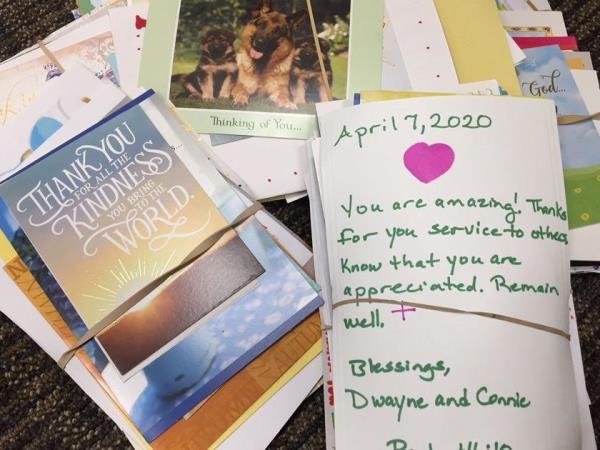 Thinking of You...
God...
THANK YOU
FOR ALL THE
KINDNESS
YOU BRING
TO THE
WORLD.
April 7, 2020
You are amazing! Thanks
for you service to others
Know that you are
appreciated. Remain
well. +
Blessings,
Dwayne and Connie